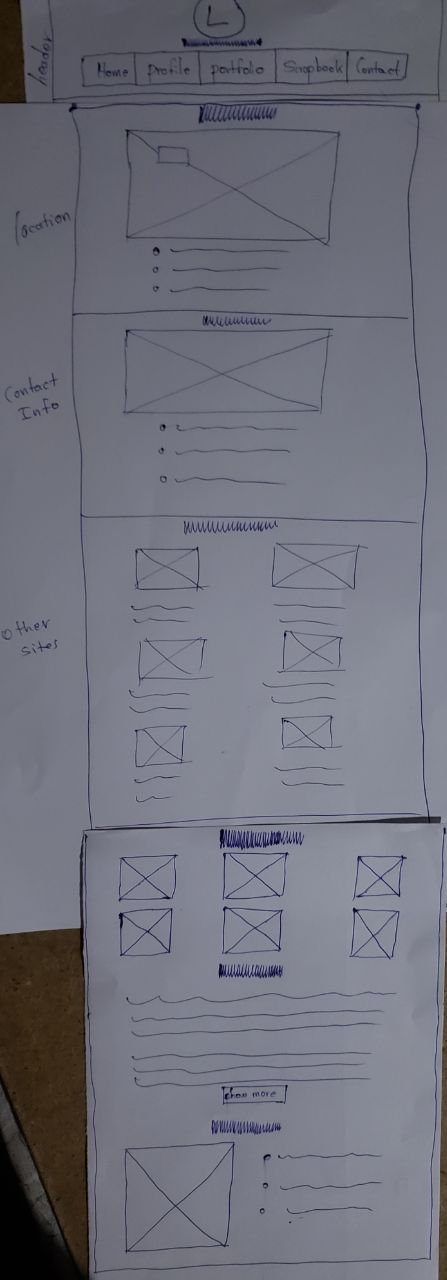 L
header
Home profile portfolio Scrapbook Contact
location
Contact
Info
Other
sites
show more